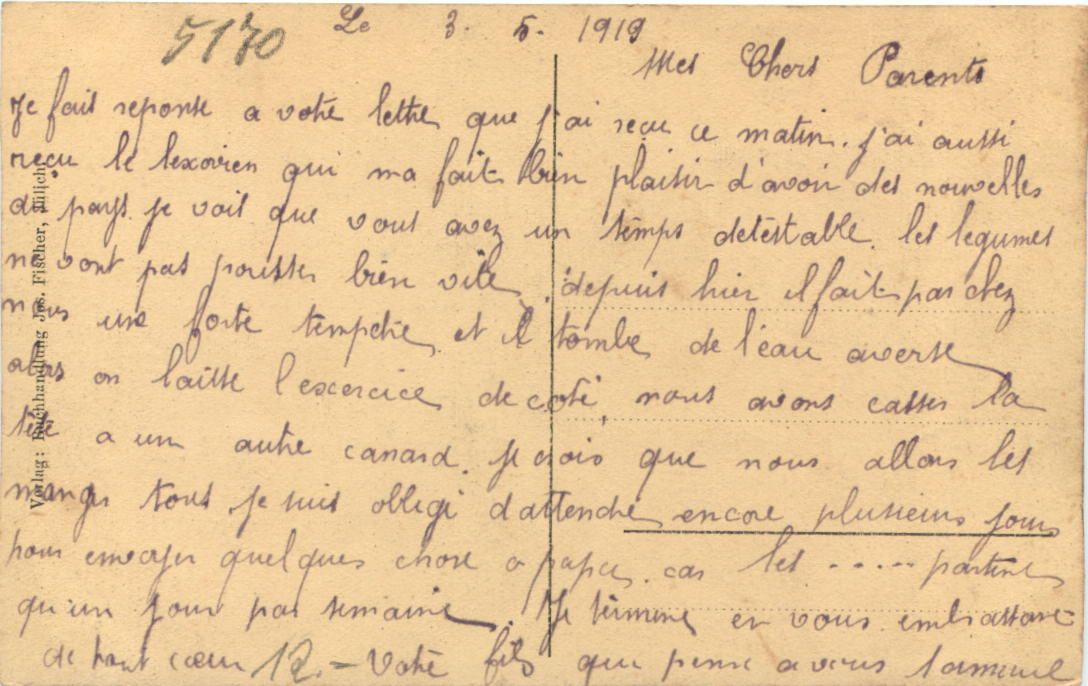 5170
Le 3. 5. 1919
Mes Chers Parents
Je fait reponse a votre lettre que j'ai reçu ce matin. j'ai aussi
reçu le lexovien qui ma fait bien plaisir d'avoir des nouvelles
du pays. je vois que vous avez un temps detestable. les legumes
ne vont pas pousser bien vite. depuis hier il fait par chez
nous une forte tempete et il tombe de l'eau averse
alors on laisse l'exercice de coté, nous avons casser la
tête a un autre canard. je crois que nous allons les
manger tous je suis obligé d'attendre encore plusieurs jours
pour envoyer quelques chose a papa. car les ..... partent
qu'un jour par semaine. Je termine en vous embrassant
de tout cœur 12. - Votre fils qui pense a vous
Verlag: Buchhandlung Jos. Fischer, Jülich.